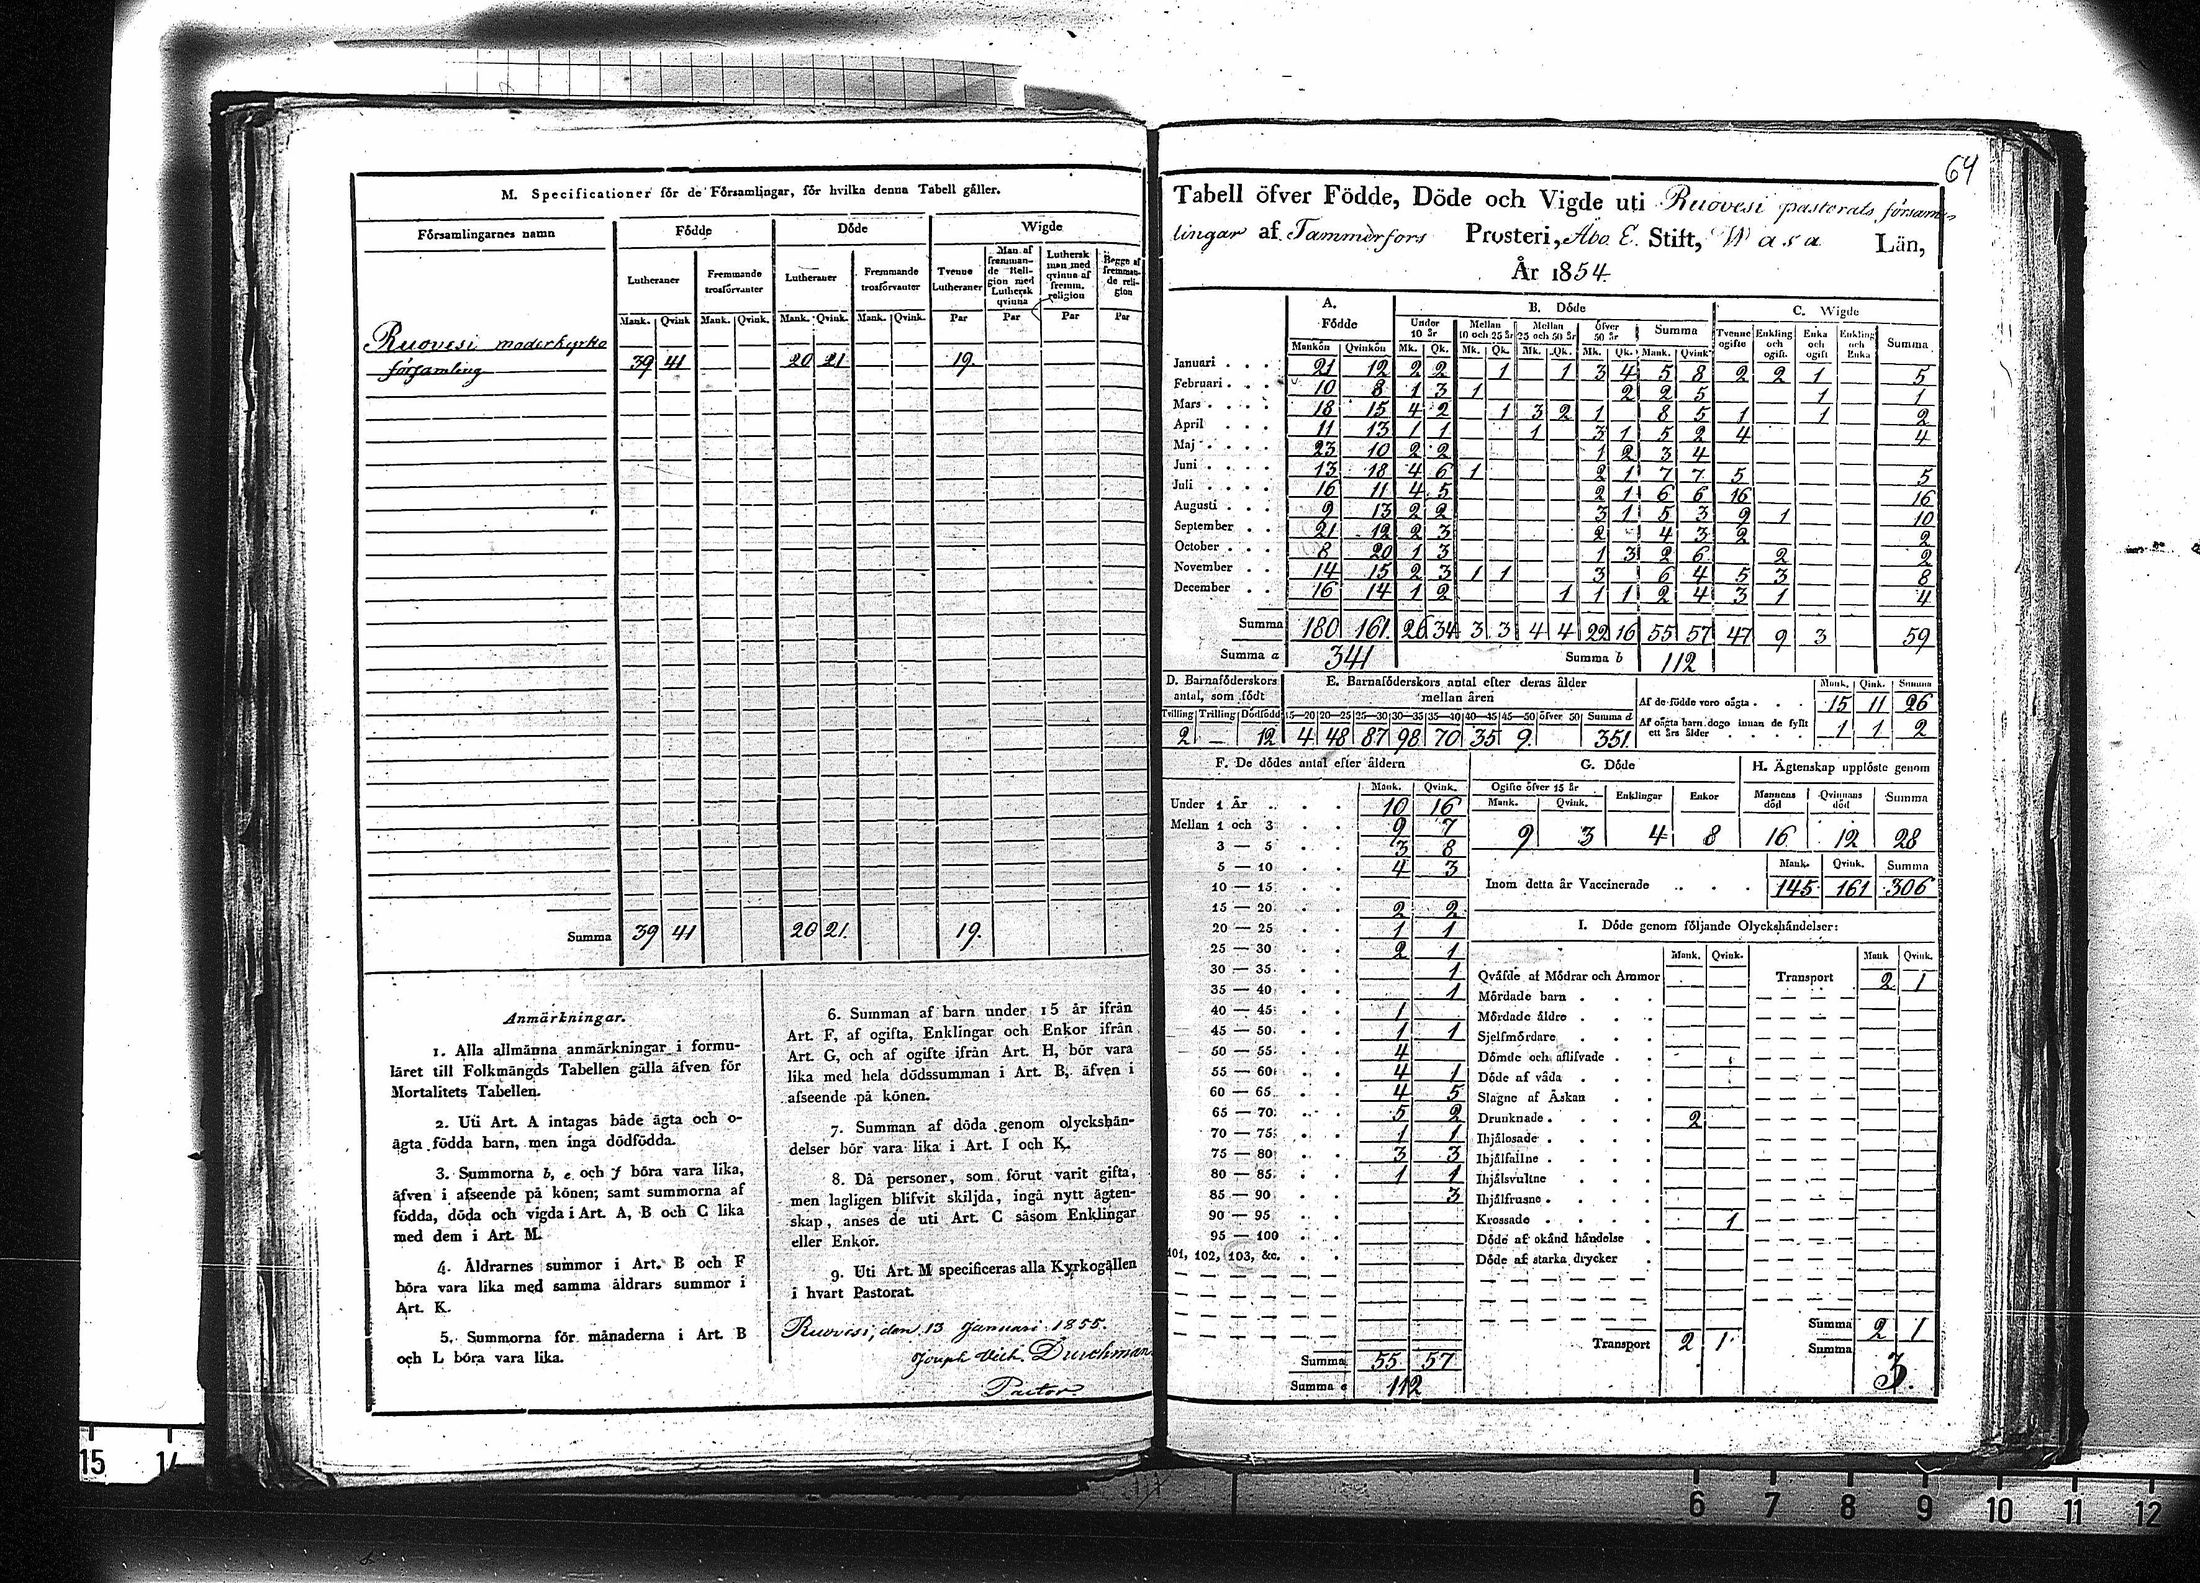 M. Specificationer för de Församlingar, för hvilka denna Tabell gäller.
Församlingarnes namn Födde Döde Wigde
Lutheraner Fremmande trosförvanter Lutheraner Fremmande trosförvanter Tvenne Lutheraner Man af fremmande Religion med Luthersk qvinna Luthersk man med qvinna af fremm. religion Begge af fremmande religion
Mank. Qvink Mank. Qvink. Mank. Qvink. Mank. Qvink. Par Par Par Par
Ruovesi moderkyrko
församling 39 41 20 21 19.
Summa 39 41 20 21. 19.
Anmärkningar.
1. Alla allmänna anmärkningar i formu-
läret till Folkmängds Tabellen gälla äfven för
Mortalitets Tabellen.
2. Uti Art. A intagas både ägta och o-
ägta födda barn, men inga dödfödda.
3. Summorna b, e och f böra vara lika,
äfven i afseende på könen; samt summorna af
födda, döda och vigda i Art. A, B och C lika
med dem i Art. M.
4. Åldrarnes summor i Art. B och F
böra vara lika med samma åldrars summor i
Art. K.
5. Summorna för månaderna i Art. B
och L böra vara lika.
6. Summan af barn under 15 år ifrån
Art. F, af ogifta, Enklingar och Enkor ifrån
Art. G, och af ogifte ifrån Art. H, bör vara
lika med hela dödssumman i Art. B, äfven i
afseende på könen.
7. Summan af döda genom olyckshän-
delser bör vara lika i Art. I och K.
8. Då personer, som förut varit gifta,
men lagligen blifvit skiljda, ingå nytt ägten-
skap, anses de uti Art. C såsom Enklingar
eller Enkor.
9. Uti Art. M specificeras alla Kyrkogällen
i hvart Pastorat.
Ruovesi, den 13 Januari 1855.
Joseph Wilh. Durchman
Pastor
64
Tabell öfver Födde, Döde och Vigde uti Ruovesi pastorats försam-
lingar af Tammerfors Prosteri, Åbo E. Stift, Wasa Län,
År 1854.
A. Födde B. Döde C. Wigde
Under 10 år Mellan 10 och 25 år Mellan 25 och 50 år öfver 50 år Summa Tvenne ogifte Enkling och ogift. Enka och ogift Enkling och Enka Summa
Mankön Qvinkön Mk. Qk. Mk. Qk. Mk. Qk. Mk. Qk. Mank. Qvink
Januari 21 12 2 2 1 1 3 4 5 8 2 2 1 5
Februari 10 8 1 3 1 2 2 5 1 1
Mars 18 15 4 2 1 3 2 1 8 5 1 1 2
April 11 13 1 1 1 3 1 5 2 4 4
Maj 23 10 2 2 1 2 3 4
Juni 13 18 4 6 1 2 1 7 7 5 5
Juli 16 11 4 5 2 1 6 6 16 16
Augusti 9 13 2 2 3 1 5 3 9 1 10
September 21 12 2 3 2 4 3 2 2
October 8 20 1 3 1 3 2 6 2 2
November 14 15 2 3 1 1 3 6 4 5 3 8
December 16 14 1 2 1 1 1 2 4 3 1 4
Summa 180 161 26 34 3 3 4 4 22 16 55 57 47 9 3 59
Summa a 341 Summa b 112
D. Barnaföderskors antal, som födt
Tvilling Trilling Dödfödd
2 — 12
E. Barnaföderskors antal efter deras ålder mellan åren
15—20 20—25 25—30 30—35 35—40 40—45 45—50 öfver 50 Summa d
4 48 87 98 70 35 9. 351.
Mank. Qink. Summa
Af de födde voro oägta 15 11 26
Af oägta barn dogo innan de fyllt ett års ålder 1 1 2
F. De dödes antal efter åldern
Mank. Qvink.
Under 1 År 10 16
Mellan 1 och 3 9 7
3 — 5 3 8
5 — 10 4 3
10 — 15
15 — 20 2 2
20 — 25 1 1
25 — 30 2 1
30 — 35 1
35 — 40 1
40 — 45 1
45 — 50 1 1
50 — 55 4
55 — 60 4 1
60 — 65 4 5
65 — 70 5 2
70 — 75 1 1
75 — 80 3 3
80 — 85 1 1
85 — 90 3
90 — 95
95 — 100
101, 102, 103, &c.
Summa 55 57
Summa e 112
G. Döde
Ogifte öfver 15 år Enklingar Enkor
Mank. Qvink.
9 3 4 8
H. Ägtenskap upplöste genom
Mannens död Qvinnans död Summa
16 12 28
Mank. Qvink. Summa
Inom detta år Vaccinerade 145 161 306
I. Döde genom följande Olyckshändelser:
Mank. Qvink. Mank Qvink.
Qväfde af Mödrar och Ammor Transport 2 1
Mördade barn
Mördade äldre
Sjelfmördare
Dömde och aflifvade
Döde af våda
Slagne af Åskan
Drunknade 2
Ihjälosade
Ihjälfallne
Ihjälsvultne
Ihjälfrusne
Krossade 1
Döde af okänd händelse
Döde af starka drycker
Summa 2 1
Transport 2 1 Summa 3.
15 14
6 7 8 9 10 11 12